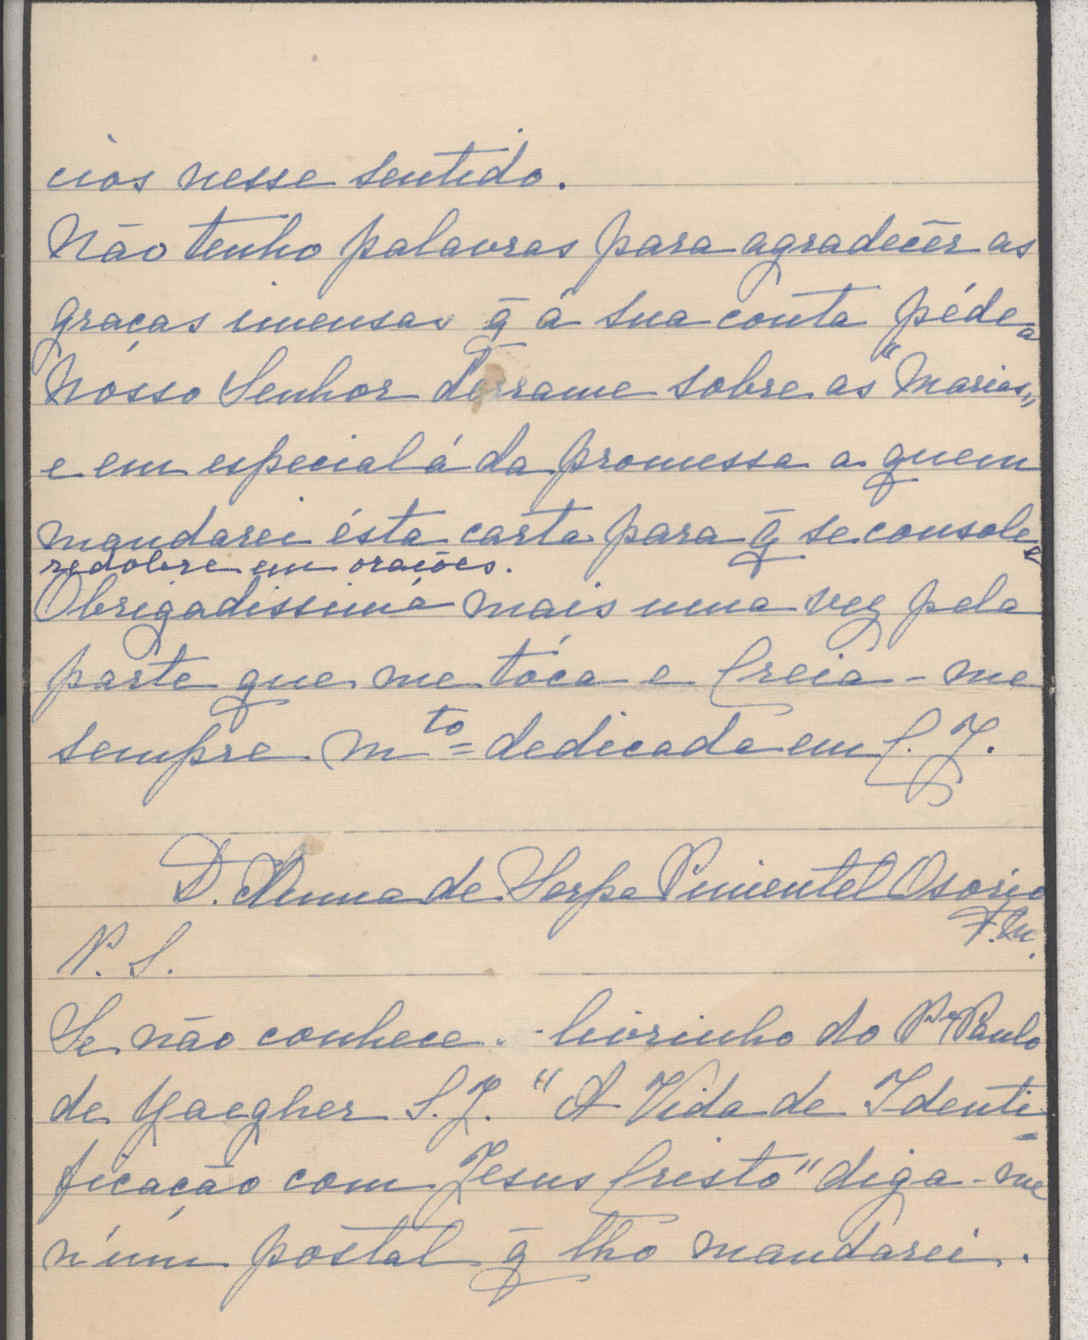 cios nesse sentido.
Não tenho palavras para agradecêr as
graças imensas q̄ á sua conta péde a
Nosso Senhor derrame sobre as "Marias"
e em especial á da promessa a quem
mandarei ésta carta para q̄ se console e
redobre em orações.
Obrigadissima mais uma vez pela
parte que me tóca e Creia-me
sempre m.to dedicada em C. J.
D. Anna de Serpa Pimentel Osorio
F. M.
P. S.
Se não conhece livrinho do P.e Paulo
de Yaegher S. J. "A Vida de Identi-
ficação com Jesus Cristo" diga-me
n'um postal q̄ lho mandarei.